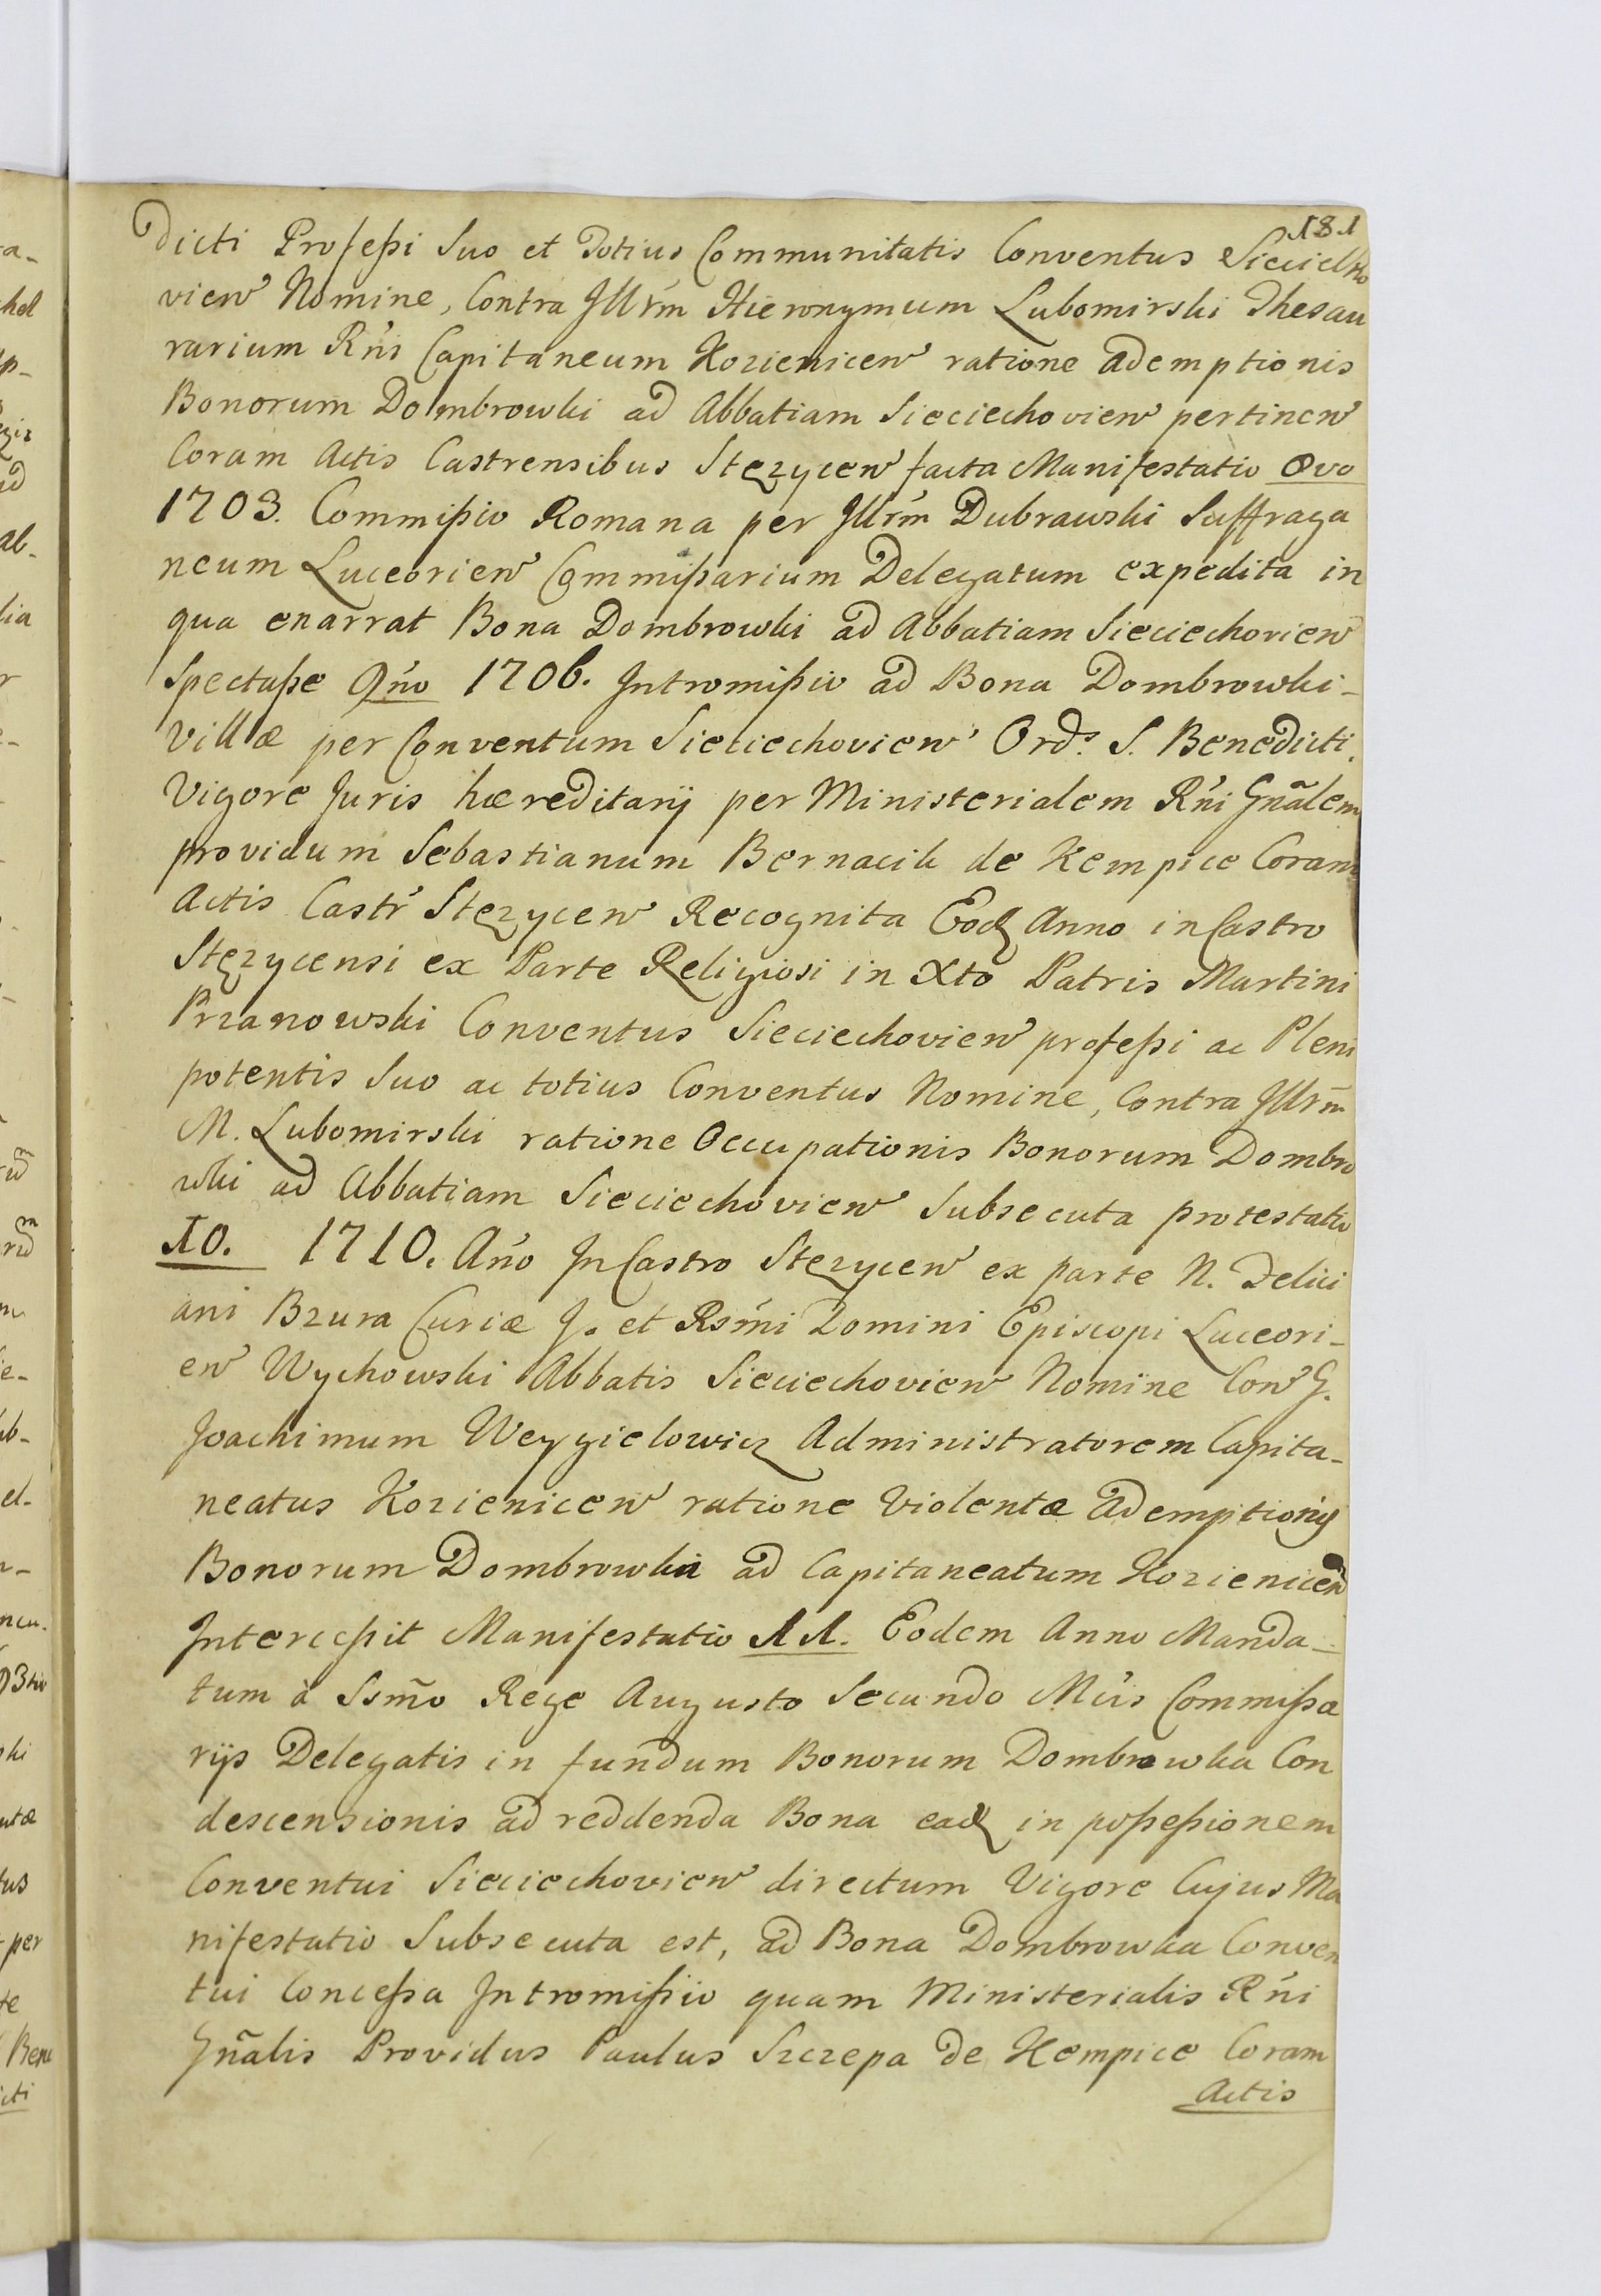 181
Dicti Profeßi Suo et Totius Communitatis Conventus Sieciecho
vien̄ Nomine, Contra Jllr̄m Hieronymum Lubomirski Thesau
rarium Rn̄i Capitaneum Kozienicen̄ ratione ademptionis
Bonorum Dombrowki ad Abbatiam Sieciechovien̄ pertinen̄
Coram Actis Castrensibus Stęzycen̄ facta Manifestatio 8vo
1703. Commißio Romana per Jllr̄m Dubrawski Suffraga
neum Luceorien̄ Commißarium Delegatum expedita in
qua enarrat Bona Dombrowki ad Abbatiam Sieciechovien̄
Spectaße 9n̄o 1706. Intromißio ad Bona Dombrowki-
Villæ per Conventum Sieciechovien̄ Ord̄s S. Benedicti.
Vigore Juris hæreditarij per Ministerialem Rn̄i Gn̄alem
providum Sebastianum Bernacik de Kempice Coram
Actis Castr̄ Stęzycen̄ Recognita Eodꝫ Anno in Castro
Stęzycensi ex Parte Religiosi in Xto Patris Martini
Przanowski Conventus Sieciechovien̄ profeßi ac Pleni
potentis Suo ac totius Conventus Nomine, Contra Jllr̄m
M. Lubomirski ratione Occupationis Bonorum Dombro
wki ad Abbatiam Sieciechovien̄ Subsecuta protestatio
10. 1710. An̄o In Castro Stęzycen̄ ex parte N. Delici
ani Bzura Curiæ J. et Rsm̄i Domini Episcopi Luceori-
en̄ Wychowski Abbatis Sieciechovien̄ Nomine Con̄ G.
Joachimum Weygielowicz Administratorem Capita-
neatus Kozienicen̄ ratione Violentæ Ademptionis
Bonorum Dombrowka ad Capitaneatum Kozienicen̄
Interceßit Manifestatio 11. Eodem Anno Manda-
tum à Ssm̄o Rege Augusto Secundo M̄is Commißa
rijs Delegatis in fundum Bonorum Dombrowka Con
descensionis ad reddenda Bona eadꝫ in poßeßionem
Conventui Sieciechovien̄ directum Vigore Cujus Ma
nifestatio Subsecuta est, ad Bona Dombrowka Conven
tui Conceßa Intromißio quam Ministerialis Rn̄i
Gn̄alis Providus Paulus Szczepa de Kempice Coram
Actis